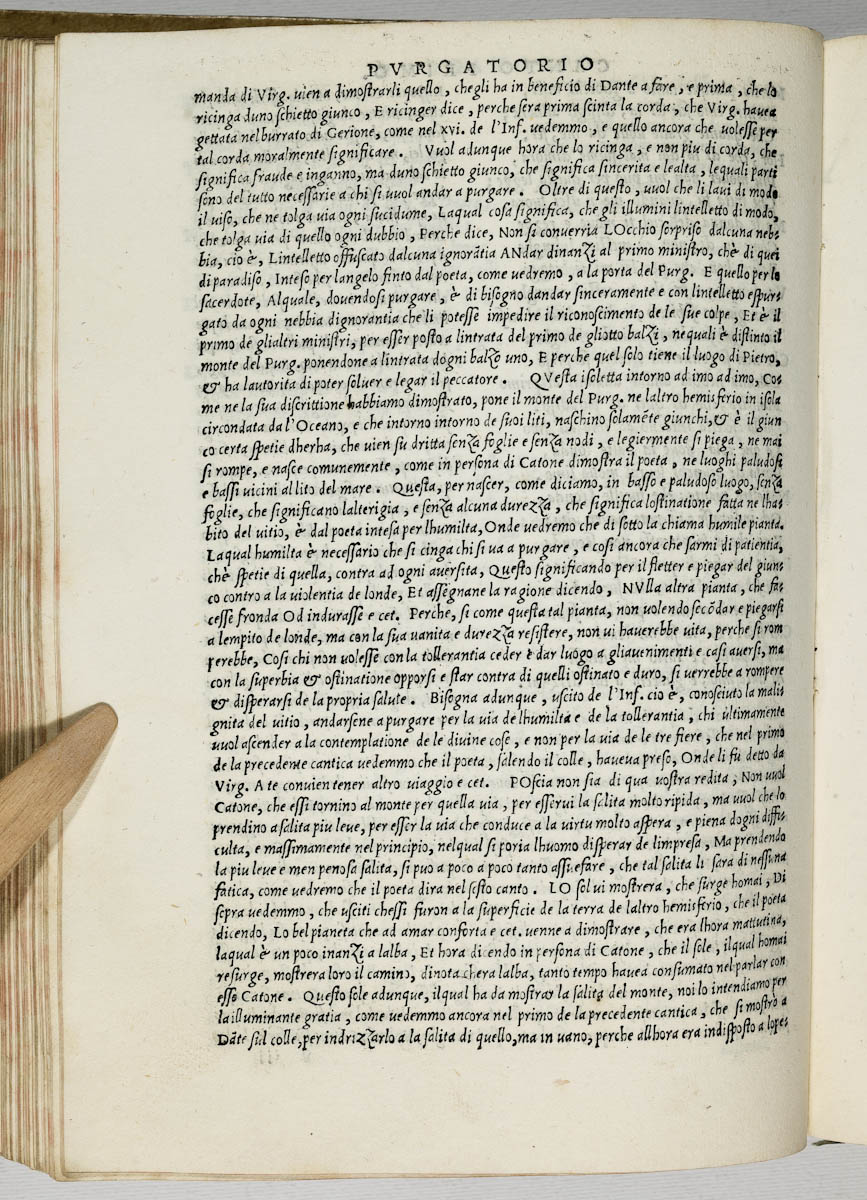 PVRGATORIO
manda di Virg. uien a dimostrarli quello, chegli ha in beneficio di Dante a fare, e prima, che lo
ricinga duno schietto giunco, E ricinger dice, perche sera prima scinta la corda, che Virg. hauea
gettata nel burrato di Gerione, come nel xvi. de l'Inf. uedemmo, e quello ancora che uolesse per
tal corda moralmente significare. Vuol adunque hora che lo ricinga, e non piu di corda, che
significa fraude e inganno, ma duno schietto giunco, che significa sincerita e lealta, lequali parti
sono del tutto necessarie a chi si uuol andar a purgare. Oltre di questo, uuol che li laui di modo
il uiso, che ne tolga uia ogni sucidume, Laqual cosa significa, che gli illumini lintelletto di modo,
che tolga uia di quello ogni dubbio, Perche dice, Non si conuerria LOcchio sorpriso dalcuna neb-
bia, cio è, Lintelletto offuscato dalcuna ignorātia ANdar dinanzi al primo ministro, chè di quei
di paradiso, Inteso per langelo finto dal poeta, come uedremo, a la porta del Purg. E quello per lo
sacerdote, Alquale, douendosi purgare, è di bisogno dandar sinceramente e con lintelletto espur-
gato da ogni nebbia dignorantia che li potesse impedire il riconoscimento de le sue colpe, Et è il
primo de glialtri ministri, per esser posto a lintrata del primo de gliotto balzi, ne quali è distinto il
monte del Purg. ponendone a lintrata dogni balzo uno, E perche quel solo tiene il luogo di Pietro,
& ha lautorita di poter soluer e legar il peccatore. QVesta isoletta intorno ad imo ad imo, Co-
me ne la sua discrittione habbiamo dimostrato, pone il monte del Purg. ne laltro hemisferio in isola
circondata da l'Oceano, e che intorno intorno de suoi liti, naschino solamēte giunchi, & è il giun
co certa spetie dherba, che uien su dritta senza foglie e senza nodi, e legiermente si piega, ne mai
si rompe, e nasce comunemente, come in persona di Catone dimostra il poeta, ne luoghi paludosi
e bassi uicini al lito del mare. Questa, per nascer, come diciamo, in basso e paludoso luogo, senza
foglie, che significano lalterigia, e senza alcuna durezza, che significa lostinatione fatta ne lha-
bito del uitio, è dal poeta intesa per lhumilta, Onde uedremo che di sotto la chiama humile pianta.
Laqual humilta è necessario che si cinga chi si ua a purgare, e cosi ancora che sarmi di patientia,
chè spetie di quella, contra ad ogni auersita, Questo significando per il fletter e piegar del giun-
co contro a la uiolentia de londe, Et assegnane la ragione dicendo, NVlla altra pianta, che fa-
cesse fronda Od indurasse e cet. Perche, si come questa tal pianta, non uolendo secōdar e piegarsi
a lempito de londe, ma con la sua uanita e durezza resistere, non ui hauerebbe uita, perche si rom
perebbe, Cosi chi non uolesse con la tollerantia ceder è dar luogo a gliauenimenti e casi auersi, ma
con la superbia & ostinatione opporsi e star contra di quelli ostinato e duro, si uerrebbe a rompere
& disperarsi de la propria salute. Bisogna adunque, uscito de l'Inf. cio è, conosciuto la mali-
gnita del uitio, andarsene a purgare per la uia de lhumilta e de la tollerantia, chi ultimamente
uuol ascender a la contemplatione de le diuine cose, e non per la uia de le tre fiere, che nel primo
de la precedente cantica uedemmo che il poeta, salendo il colle, haueua preso, Onde li fu detto da
Virg. A te conuien tener altro uiaggio e cet. POscia non sia di qua uostra redita, Non uuol
Catone, che essi tornino al monte per quella uia, per esserui la salita molto ripida, ma uuol che lo
prendino a salita piu leue, per esser la uia che conduce a la uirtu molto aspera, e piena dogni diffi-
culta, e massimamente nel principio, nelqual si poria lhuomo disperar de limpresa, Ma prendendo
la piu leue e men penosa salita, si puo a poco a poco tanto assuefare, che tal salita li sara di nessuna
fatica, come uedremo che il poeta dira nel sesto canto. LO sol ui mostrera, che surge homai, Di
sopra uedemmo, che usciti chessi furon a la superficie de la terra de laltro hemisferio, che il poeta
dicendo, Lo bel pianeta che ad amar conforta e cet. uenne a dimostrare, che era lhora mattutina,
laqual è un poco inanzi a lalba, Et hora dicendo in persona di Catone, che il sole, ilqual homai
resurge, mostrera loro il camino, dinota chera lalba, tanto tempo hauea consumato nel parlar con
esso Catone. Questo sole adunque, ilqual ha da mostrar la salita del monte, noi lo intendiamo per
la illuminante gratia, come uedemmo ancora nel primo de la precedente cantica, che si mostro a
Dāte sul colle, per indrizzarlo a la salita di quello, ma in uano, perche allhora era indisposto a lope-